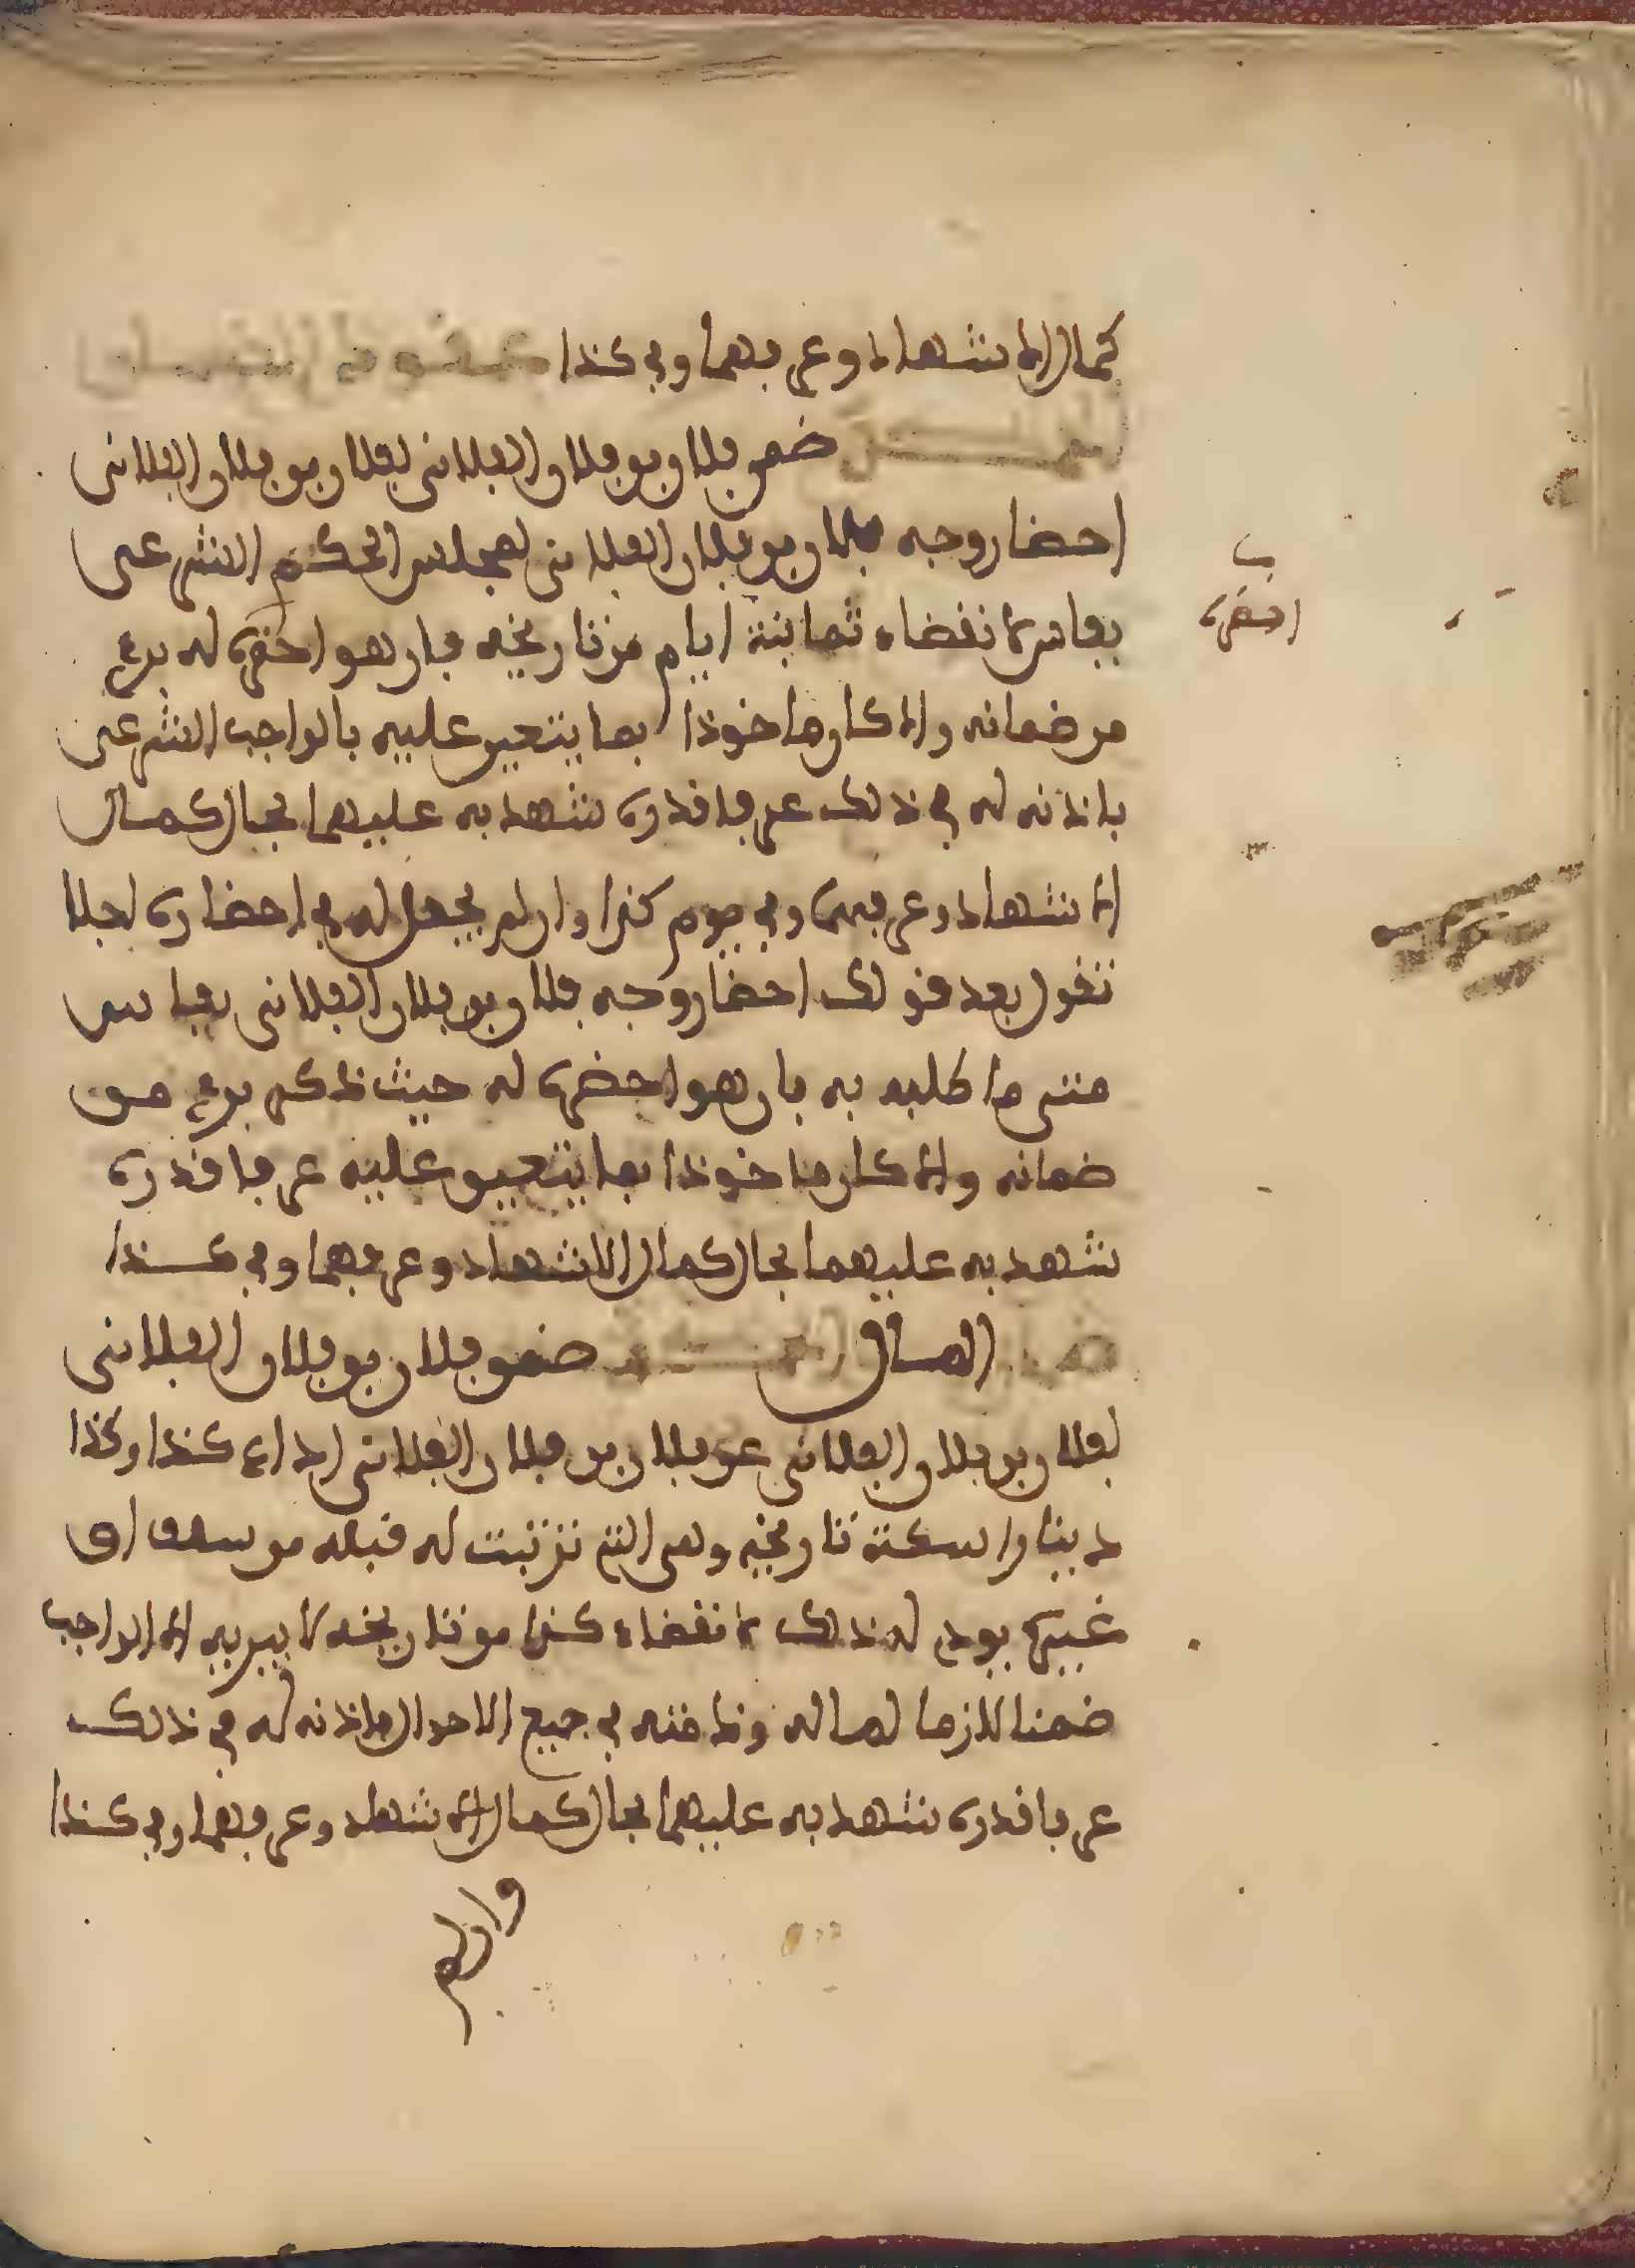 كمال الاشهاد وعرفهما وفي كذا
ضمن فلان بن فلان الفلاني لفلان بن فلان الفلاني
احضار وجه فلان بن فلان الفلاني لمجلس الحكم الشرعي
بفاس لانقضاء ثمانية ايام من تاريخه فان هو احضره له برئ
من ضمانه والا كان ماخوذا بما يتعين عليه بالواجب الشرعي
باذنه له في ذلك عرفا قدره شهد به عليهما بحال كمال
الاشهاد وعرفهما وفي يوم كذا وان لم يجعل له في احضاره اجلا
تقول بعد قولك احضار وجه فلان بن فلان الفلاني بفاس
متى ما طلبه به فان هو احضره له حيث ذكر برئ من
ضمانه والا كان ماخوذا بما يتعين عليه عرفا قدره
شهد به عليهما بحال كمال الاشهاد وعرفهما وفي كذا
المال ضمن فلان بن فلان الفلاني
لفلان بن فلان الفلاني عن فلان بن فلان الفلاني اداء كذا وكذا
دينارا سكة تاريخه وهي التي ترتبت له قبله من سلف او
غيره يودي له ذلك لانقضاء كذا من تاريخه لا يبريه الا الواجب
ضمنا لازما لماله وذمته في جميع الاحوال باذنه له في ذلك
عرفا قدره شهد به عليهما بحال كمال الاشهاد وعرفهما وفي كذا
وان لم
احضره